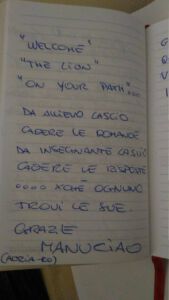 "WELCOME"
"THE LION"
"ON YOUR PATH"...
DA ALLIEVO LASCIO
CADERE LE DOMANDE
DA INSEGNANTE LASCIO
CADERE LE RISPOSTE
.... XCHÈ OGNUNO
TROVI LE SUE.
GRAZIE
MANUCIAO
(ADRIA-RO)